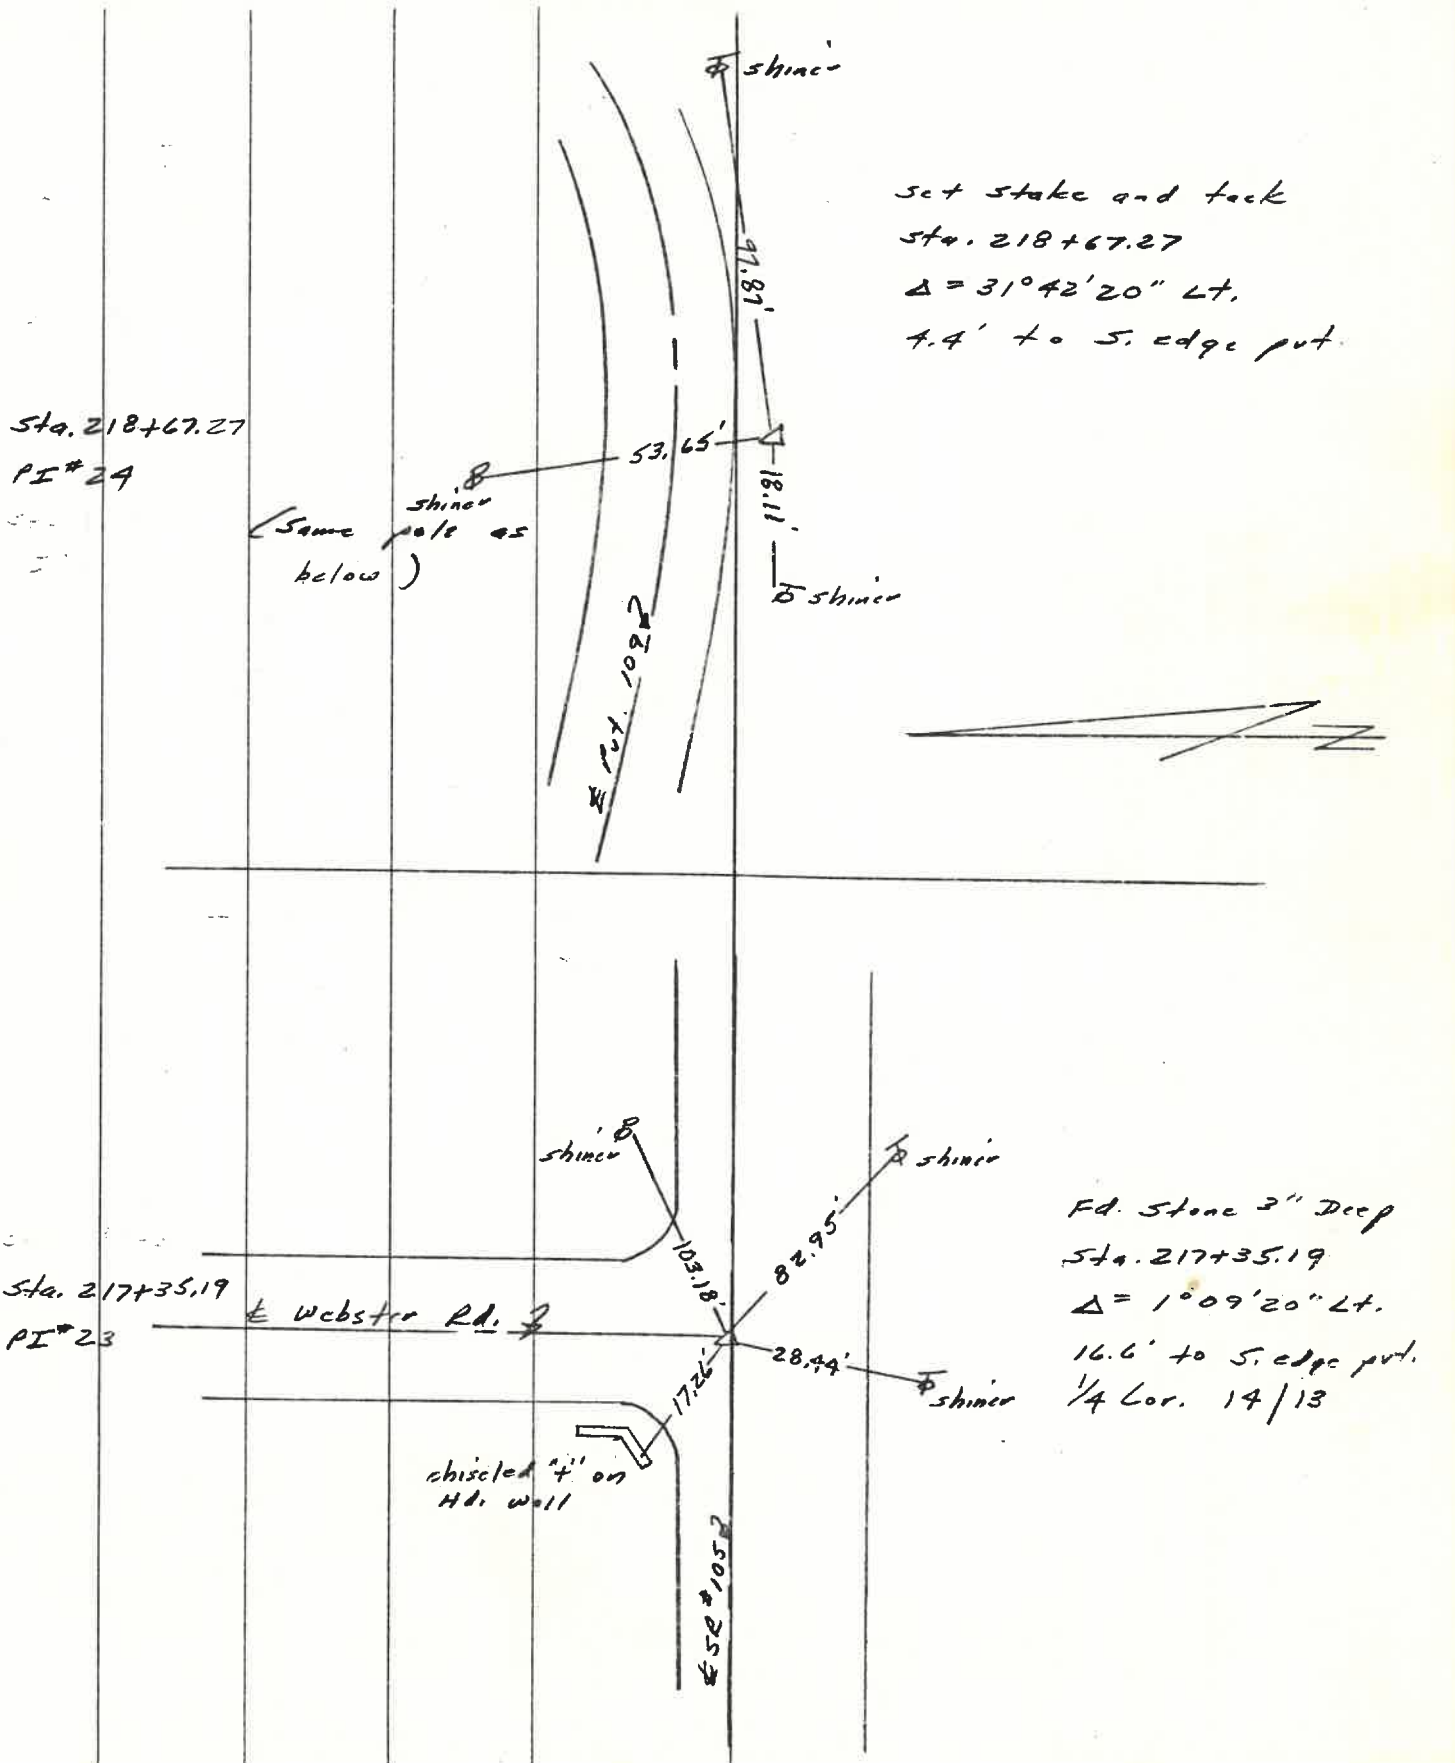 shiner
set stake and tack
sta. 218+67.27
Δ = 31°42'20" Lt.
4.4' to S. edge pvt.
97.87'
Sta. 218+67.27
PI #24
53.65'
18.11'
shiner
(Same pole as
below)
shiner
℄ Pvt. 105
N
shiner
shiner
82.95'
103.18'
Fd. Stone 3" Deep
Sta. 217+35.19
Δ = 1°09'20" Lt.
16.6' to S. edge pvt.
1/4 Cor. 14/13
Sta. 217+35.19
PI #23
℄ Webster Rd.
28.44'
shiner
17.26'
chiseled "+" on
Hd. wall
℄ SR #105